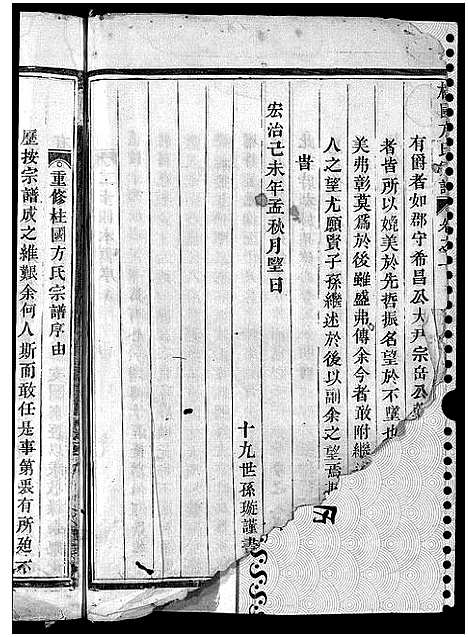 柱國方氏宗譜 卷之一
有爵者如郡守希昌公大尹宗岳公
者皆所以媲美於先哲振名望於不墜也
美弗彰莫爲於後雖盛弗傳余今者敢附繼
人之望尤願賢子孫繼述於後以副余之望焉
旹
宏治己未年孟秋月望日
十九世孫璇謹書
重修柱國方氏宗譜序由
歷按宗譜成之維艱余何人斯而敢任是事第衷有所廹不